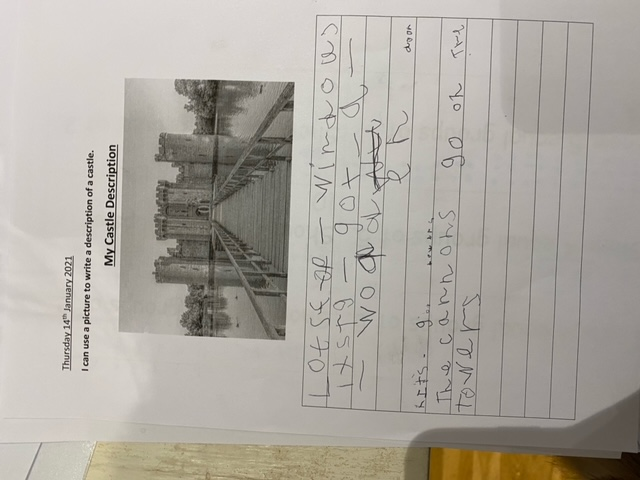 Thursday 14th January 2021
I can use a picture to write a description of a castle.
My Castle Description
Lotse of – Windows
itstg – got – a –
– wood
en
The cannons go on the
towers